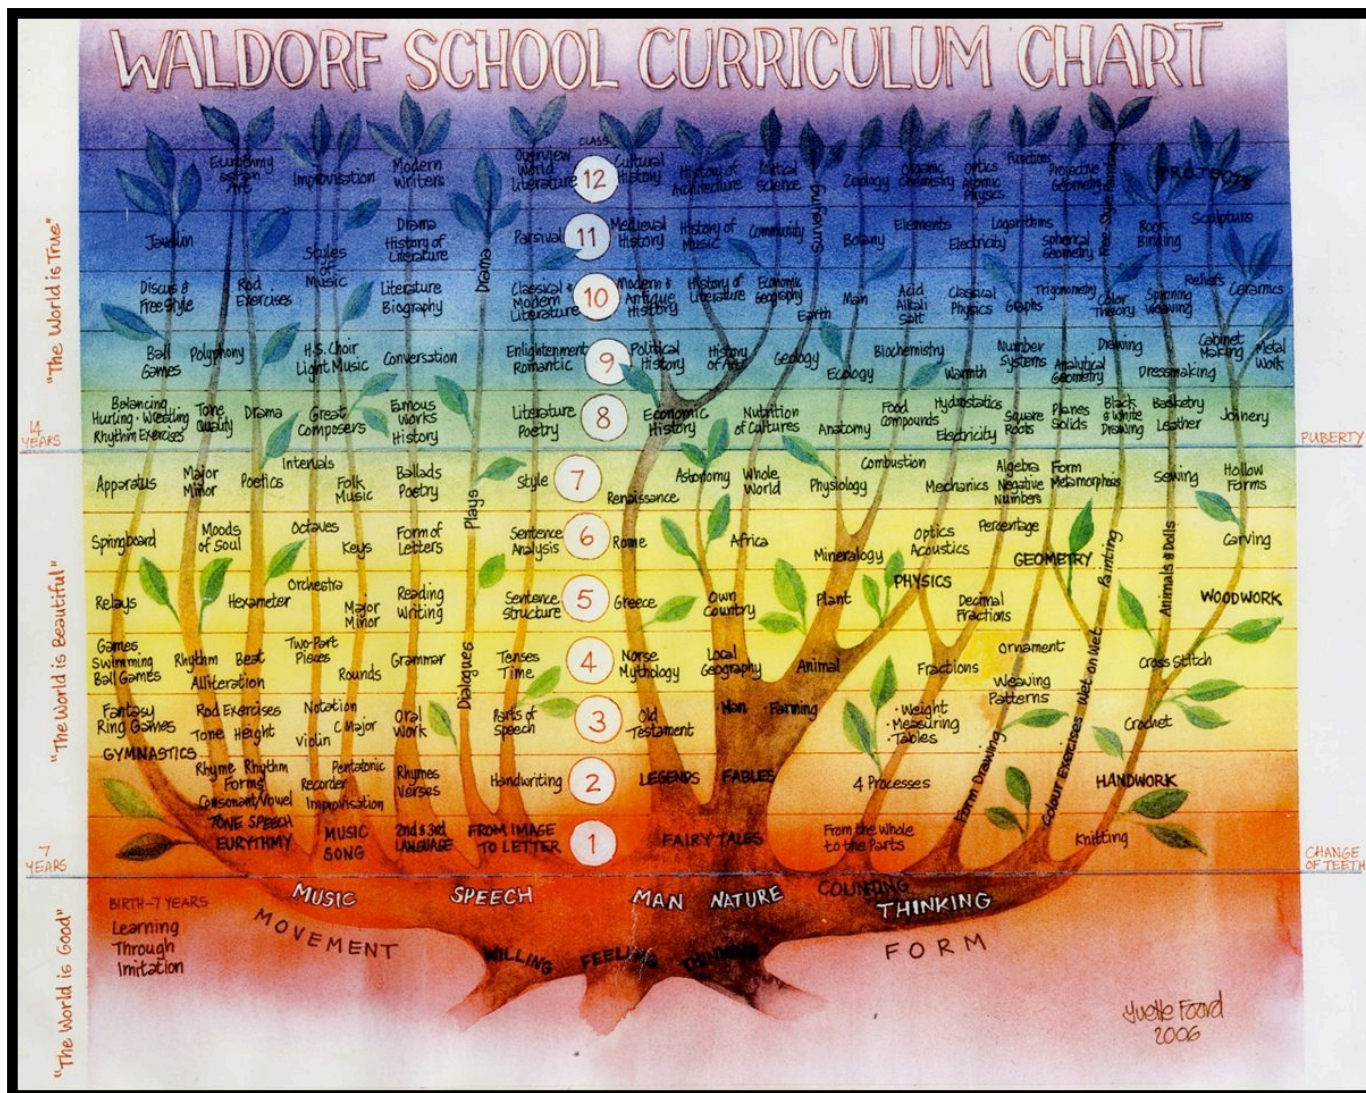 WALDORF SCHOOL CURRICULUM CHART
CLASS
12
Eurythmy
as an
Art
Improvisation
Modern
Writers
Overview
World
Literature
Cultural
History
History of
Architecture
Political
Science
Surveying
Zoology
Organic
Chemistry
Optics
Atomic
Physics
Functions
Projective
Geometry
Free-Style Painting
PROJECTS
11
Javelin
Styles
of
Music
Drama
History of
Literature
Drama
Parsival
Medieval
History
History of
Music
Community
Botany
Elements
Electricity
Logarithms
Spherical
Geometry
Book
Binding
Sculpture
10
Discus &
Freestyle
Rod
Exercises
Literature
Biography
Classical &
Modern
Literature
Modern &
Antique
History
History of
Literature
Economic
Geography
Earth
Man
Acid
Alkali
Salt
Classical
Physics
Graphs
Trigonometry
Color
Theory
Spinning
Weaving
Reliefs
Ceramics
"The World is True"
9
Ball
Games
Polyphony
H.S. Choir
Light Music
Conversation
Enlightenment
Romantic
Political
History
History
of Art
Geology
Ecology
Biochemistry
Warmth
Number
Systems
Analytical
Geometry
Drawing
Dressmaking
Cabinet
Making
Metal
Work
8
Balancing
Hurling · Wrestling
Rhythm Exercises
Tone
Quality
Drama
Great
Composers
Famous
Works
History
Literature
Poetry
Economic
History
Nutrition
of Cultures
Anatomy
Food
Compounds
Hydrostatics
Electricity
Square
Roots
Planes
Solids
Black
& White
Drawing
Basketry
Leather
Joinery
14
YEARS
PUBERTY
7
Apparatus
Major
Minor
Poetics
Intervals
Folk
Music
Ballads
Poetry
Plays
Style
Renaissance
Astonomy
Whole
World
Physiology
Combustion
Mechanics
Algebra
Negative
Numbers
Form
Metamorphosis
Sewing
Hollow
Forms
6
Springboard
Moods
of Soul
Octaves
Keys
Form of
Letters
Sentence
Analysis
Rome
Africa
Mineralogy
Optics
Acoustics
Percentage
GEOMETRY
Painting
Animals & Dolls
Carving
"The World is Beautiful"
5
Relays
Hexameter
Orchestra
Major
Minor
Reading
Writing
Sentence
Structure
Greece
Own
Country
Plant
PHYSICS
Decimal
Fractions
WOODWORK
4
Games
Swimming
Ball Games
Rhythm
Beat
Alliteration
Two-Part
Pieces
Rounds
Grammar
Dialogues
Tenses
Time
Norse
Mythology
Local
Geography
Animal
Fractions
Ornament
Weaving
Patterns
Wet on Wet
Cross Stitch
3
Fantasy
Ring Games
Rod Exercises
Tone Height
Notation
Violin
C Major
Oral
Work
Parts of
Speech
Old
Testament
· Man
· Farming
· Weight
· Measuring
· Tables
Crochet
GYMNASTICS
2
Rhyme Rhythm
Forms
Consonant/Vowel
Pentatonic
Recorder
Improvisation
Rhymes
Verses
Handwriting
LEGENDS
FABLES
4 Processes
Form Drawing
Colour Exercises
HANDWORK
1
TONE SPEECH
EURYTHMY
MUSIC
SONG
2nd & 3rd
LANGUAGE
FROM IMAGE
TO LETTER
FAIRY TALES
From the Whole
to the Parts
Knitting
7
YEARS
CHANGE
OF TEETH
MUSIC
SPEECH
MAN
NATURE
COUNTING
THINKING
MOVEMENT
FORM
WILLING
FEELING
THINKING
BIRTH-7 YEARS
Learning
Through
Imitation
"The World is Good"
Yvette Foord
2006